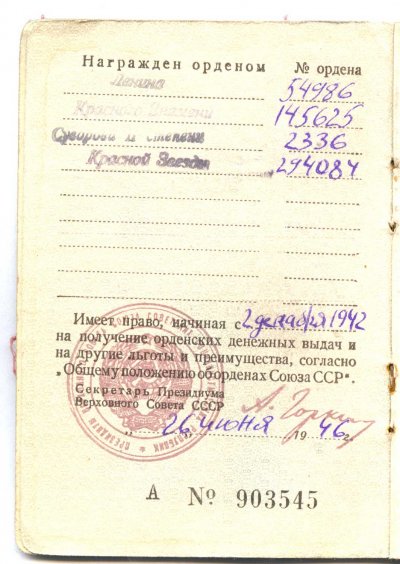 Награжден орденом № ордена
Ленина 54986
Красного Знамени 145625
Суворова II степени 2336
Красной Звезды 294084
Имеет право, начиная с 2 декабря 1942
на получение орденских денежных выдач и
на другие льготы и преимущества, согласно
„Общему положению об орденах Союза ССР".
Секретарь Президиума
Верховного Совета СССР
А. Горкин
„26„ июня 1946 г.
А № 903545